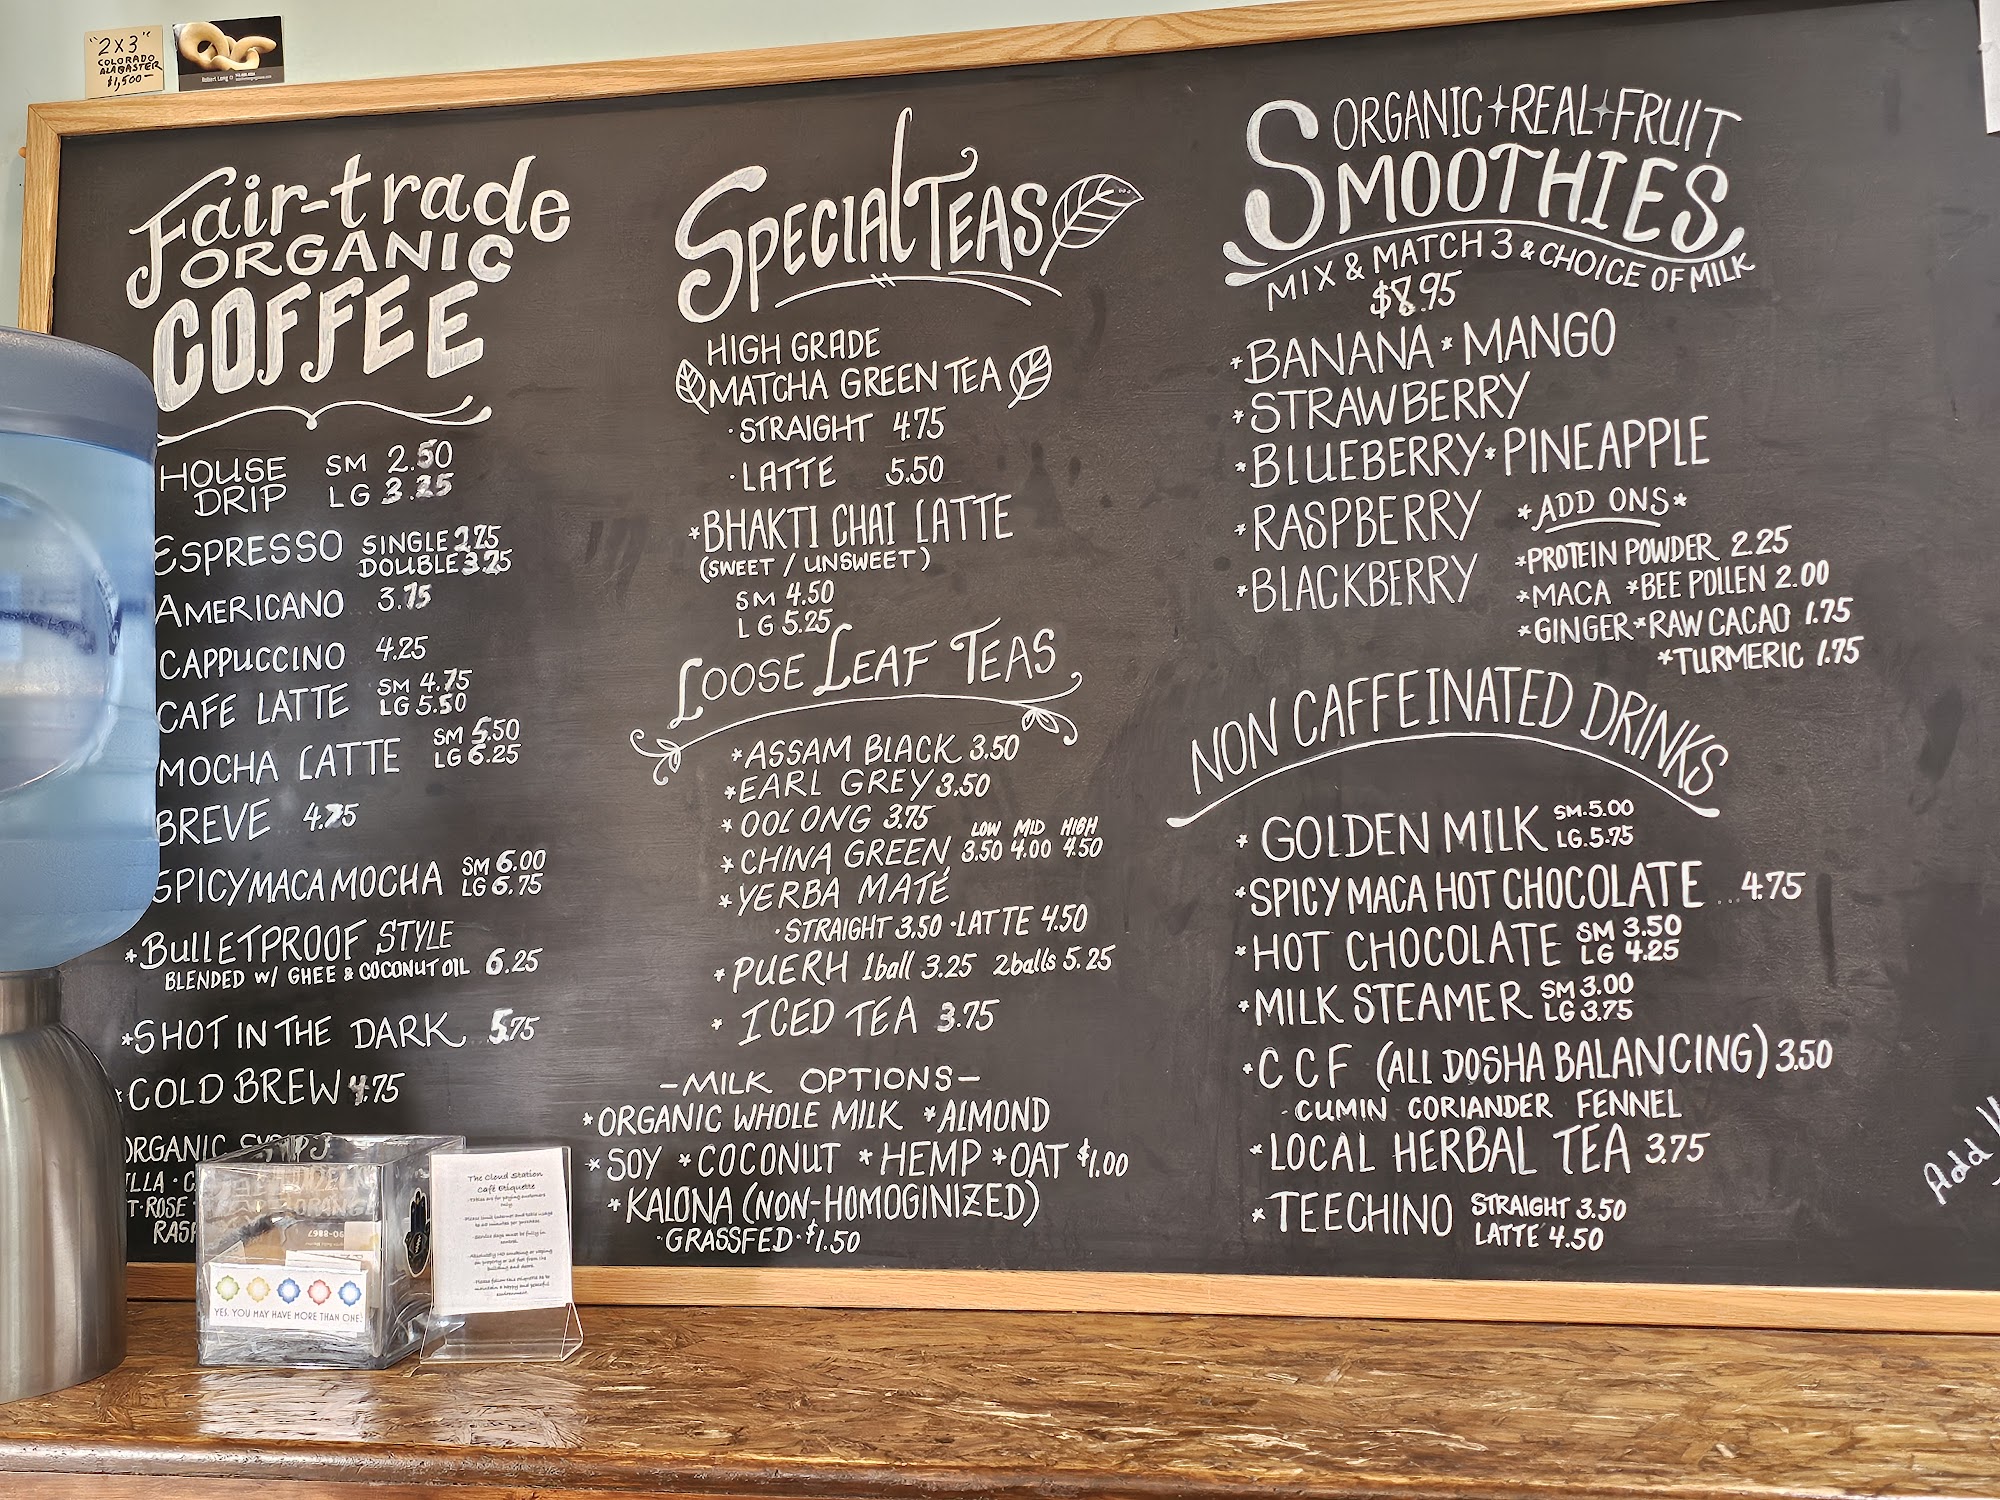 "2X3"
COLORADO
ALABASTER
$1,500—
Robert Long
Fair-trade
ORGANIC
COFFEE
HOUSE DRIP SM 2.50
LG 3.25
ESPRESSO SINGLE 2.75
DOUBLE 3.75
AMERICANO 3.75
CAPPUCCINO 4.25
CAFE LATTE SM 4.75
LG 5.50
MOCHA LATTE SM 5.50
LG 6.25
BREVE 4.75
SPICY MACA MOCHA SM 6.00
LG 6.75
*BULLETPROOF STYLE
BLENDED W/ GHEE & COCONUT OIL 6.25
*SHOT IN THE DARK 5.75
*COLD BREW 4.75
ORGANIC
ROSE
SPECIALTEAS
HIGH GRADE
MATCHA GREEN TEA
·STRAIGHT 4.75
·LATTE 5.50
*BHAKTI CHAI LATTE
(SWEET / UNSWEET)
SM 4.50
LG 5.25
LOOSE LEAF TEAS
*ASSAM BLACK 3.50
*EARL GREY 3.50
*OOLONG 3.75
LOW MID HIGH
*CHINA GREEN 3.50 4.00 4.50
*YERBA MATÉ
·STRAIGHT 3.50 ·LATTE 4.50
*PUERH 1ball 3.25 2balls 5.25
*ICED TEA 3.75
-MILK OPTIONS-
*ORGANIC WHOLE MILK *ALMOND
*SOY *COCONUT *HEMP *OAT $1.00
*KALONA (NON-HOMOGINIZED)
·GRASSFED·$1.50
ORGANIC+REAL+FRUIT
SMOOTHIES
MIX & MATCH 3 & CHOICE OF MILK
$8.95
*BANANA *MANGO
*STRAWBERRY
*BLUEBERRY *PINEAPPLE
*RASPBERRY
*BLACKBERRY
*ADD ONS*
*PROTEIN POWDER 2.25
*MACA *BEE POLLEN 2.00
*GINGER *RAW CACAO 1.75
*TURMERIC 1.75
NON CAFFEINATED DRINKS
*GOLDEN MILK SM. 5.00
LG. 5.75
*SPICY MACA HOT CHOCOLATE ... 4.75
*HOT CHOCOLATE SM 3.50
LG 4.25
*MILK STEAMER SM 3.00
LG 3.75
*CCF (ALL DOSHA BALANCING) 3.50
- CUMIN CORIANDER FENNEL
*LOCAL HERBAL TEA 3.75
*TEECHINO STRAIGHT 3.50
LATTE 4.50
Add
YES, YOU MAY HAVE MORE THAN ONE!
The Cloud Station
Café Etiquette